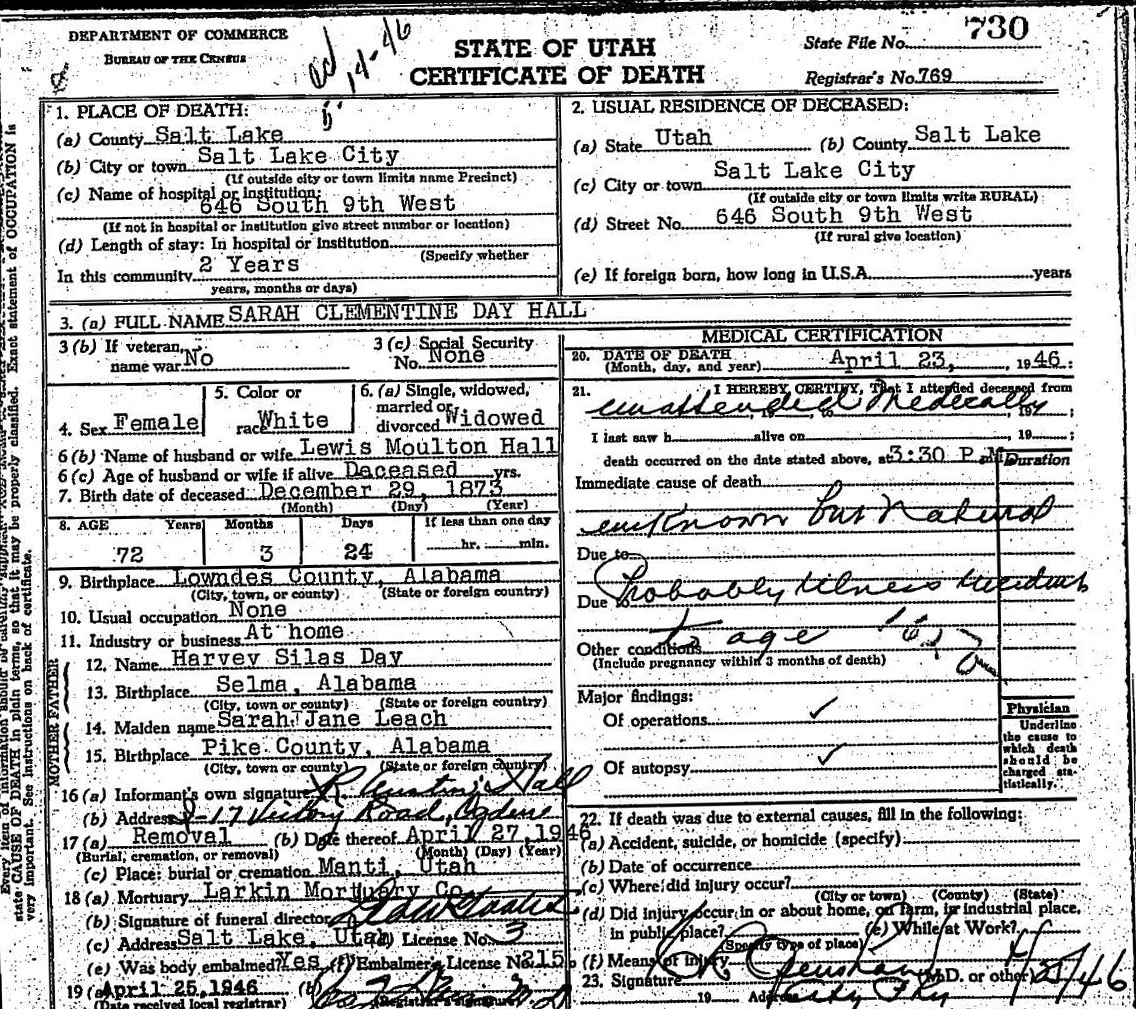 DEPARTMENT OF COMMERCE
BUREAU OF THE CENSUS
14-46
STATE OF UTAH
CERTIFICATE OF DEATH
State File No. 730
Registrar's No. 769
1. PLACE OF DEATH:
(a) County Salt Lake
(b) City or town Salt Lake City
(If outside city or town limits name Precinct)
(c) Name of hospital or institution:
646 South 9th West
(If not in hospital or institution give street number or location)
(d) Length of stay: In hospital or institution
(Specify whether
In this community 2 Years
years, months or days)
2. USUAL RESIDENCE OF DECEASED:
(a) State Utah (b) County Salt Lake
(c) City or town Salt Lake City
(If outside city or town limits write RURAL)
(d) Street No. 646 South 9th West
(If rural give location)
(e) If foreign born, how long in U.S.A. years
3. (a) FULL NAME SARAH CLEMENTINE DAY HALL
3 (b) If veteran, name war No
3 (c) Social Security No. None
4. Sex Female
5. Color or race White
6. (a) Single, widowed, married or divorced Widowed
6 (b) Name of husband or wife Lewis Moulton Hall
6 (c) Age of husband or wife if alive Deceased yrs.
7. Birth date of deceased December 29, 1873
(Month) (Day) (Year)
8. AGE Years Months Days If less than one day
72 3 24 hr. min.
9. Birthplace Lowndes County, Alabama
(City, town, or county) (State or foreign country)
10. Usual occupation None
11. Industry or business At home
FATHER
12. Name Harvey Silas Day
13. Birthplace Selma, Alabama
(City, town or county) (State or foreign country)
MOTHER
14. Maiden name Sarah Jane Leach
15. Birthplace Pike County, Alabama
(City, town or county) (State or foreign country)
16 (a) Informant's own signature Hall
(b) Address Victory Road, Ogden
17 (a) Removal (b) Date thereof April 27, 1946
(Burial, cremation, or removal) (Month) (Day) (Year)
(c) Place: burial or cremation Manti, Utah
18 (a) Mortuary Larkin Mortuary Co.
(b) Signature of funeral director
(c) Address Salt Lake, Utah (d) License No. 3
(e) Was body embalmed? Yes (f) Embalmer's License No. 215
19 (a) April 25, 1946 (b)
(Date received local registrar) (Registrar's signature)
MEDICAL CERTIFICATION
20. DATE OF DEATH
(Month, day, and year) April 23, 1946
21. I HEREBY CERTIFY, That I attended deceased from
unattended Medically
I last saw h alive on , 19 ;
death occurred on the date stated above, at 3:30 P.M.
Duration
Immediate cause of death
unknown but Natural
Due to
Due to Probably illness incident
to age
Other conditions
(Include pregnancy within 3 months of death)
Major findings:
Of operations ✓
Of autopsy ✓
Physician
Underline
the cause to
which death
should be
charged sta-
tistically.
22. If death was due to external causes, fill in the following:
(a) Accident, suicide, or homicide (specify)
(b) Date of occurrence
(c) Where did injury occur?
(City or town) (County) (State)
(d) Did injury occur in or about home, on farm, in industrial place,
in public place? (e) While at Work?
(Specify type of place)
(f) Means of injury
23. Signature (M.D. or other) 4/25/46
19 Address City
Every item of information should be carefully supplied.
state CAUSE OF DEATH in plain terms, so that it may be properly classified. Exact statement of OCCUPATION is
very important. See instructions on back of certificate.